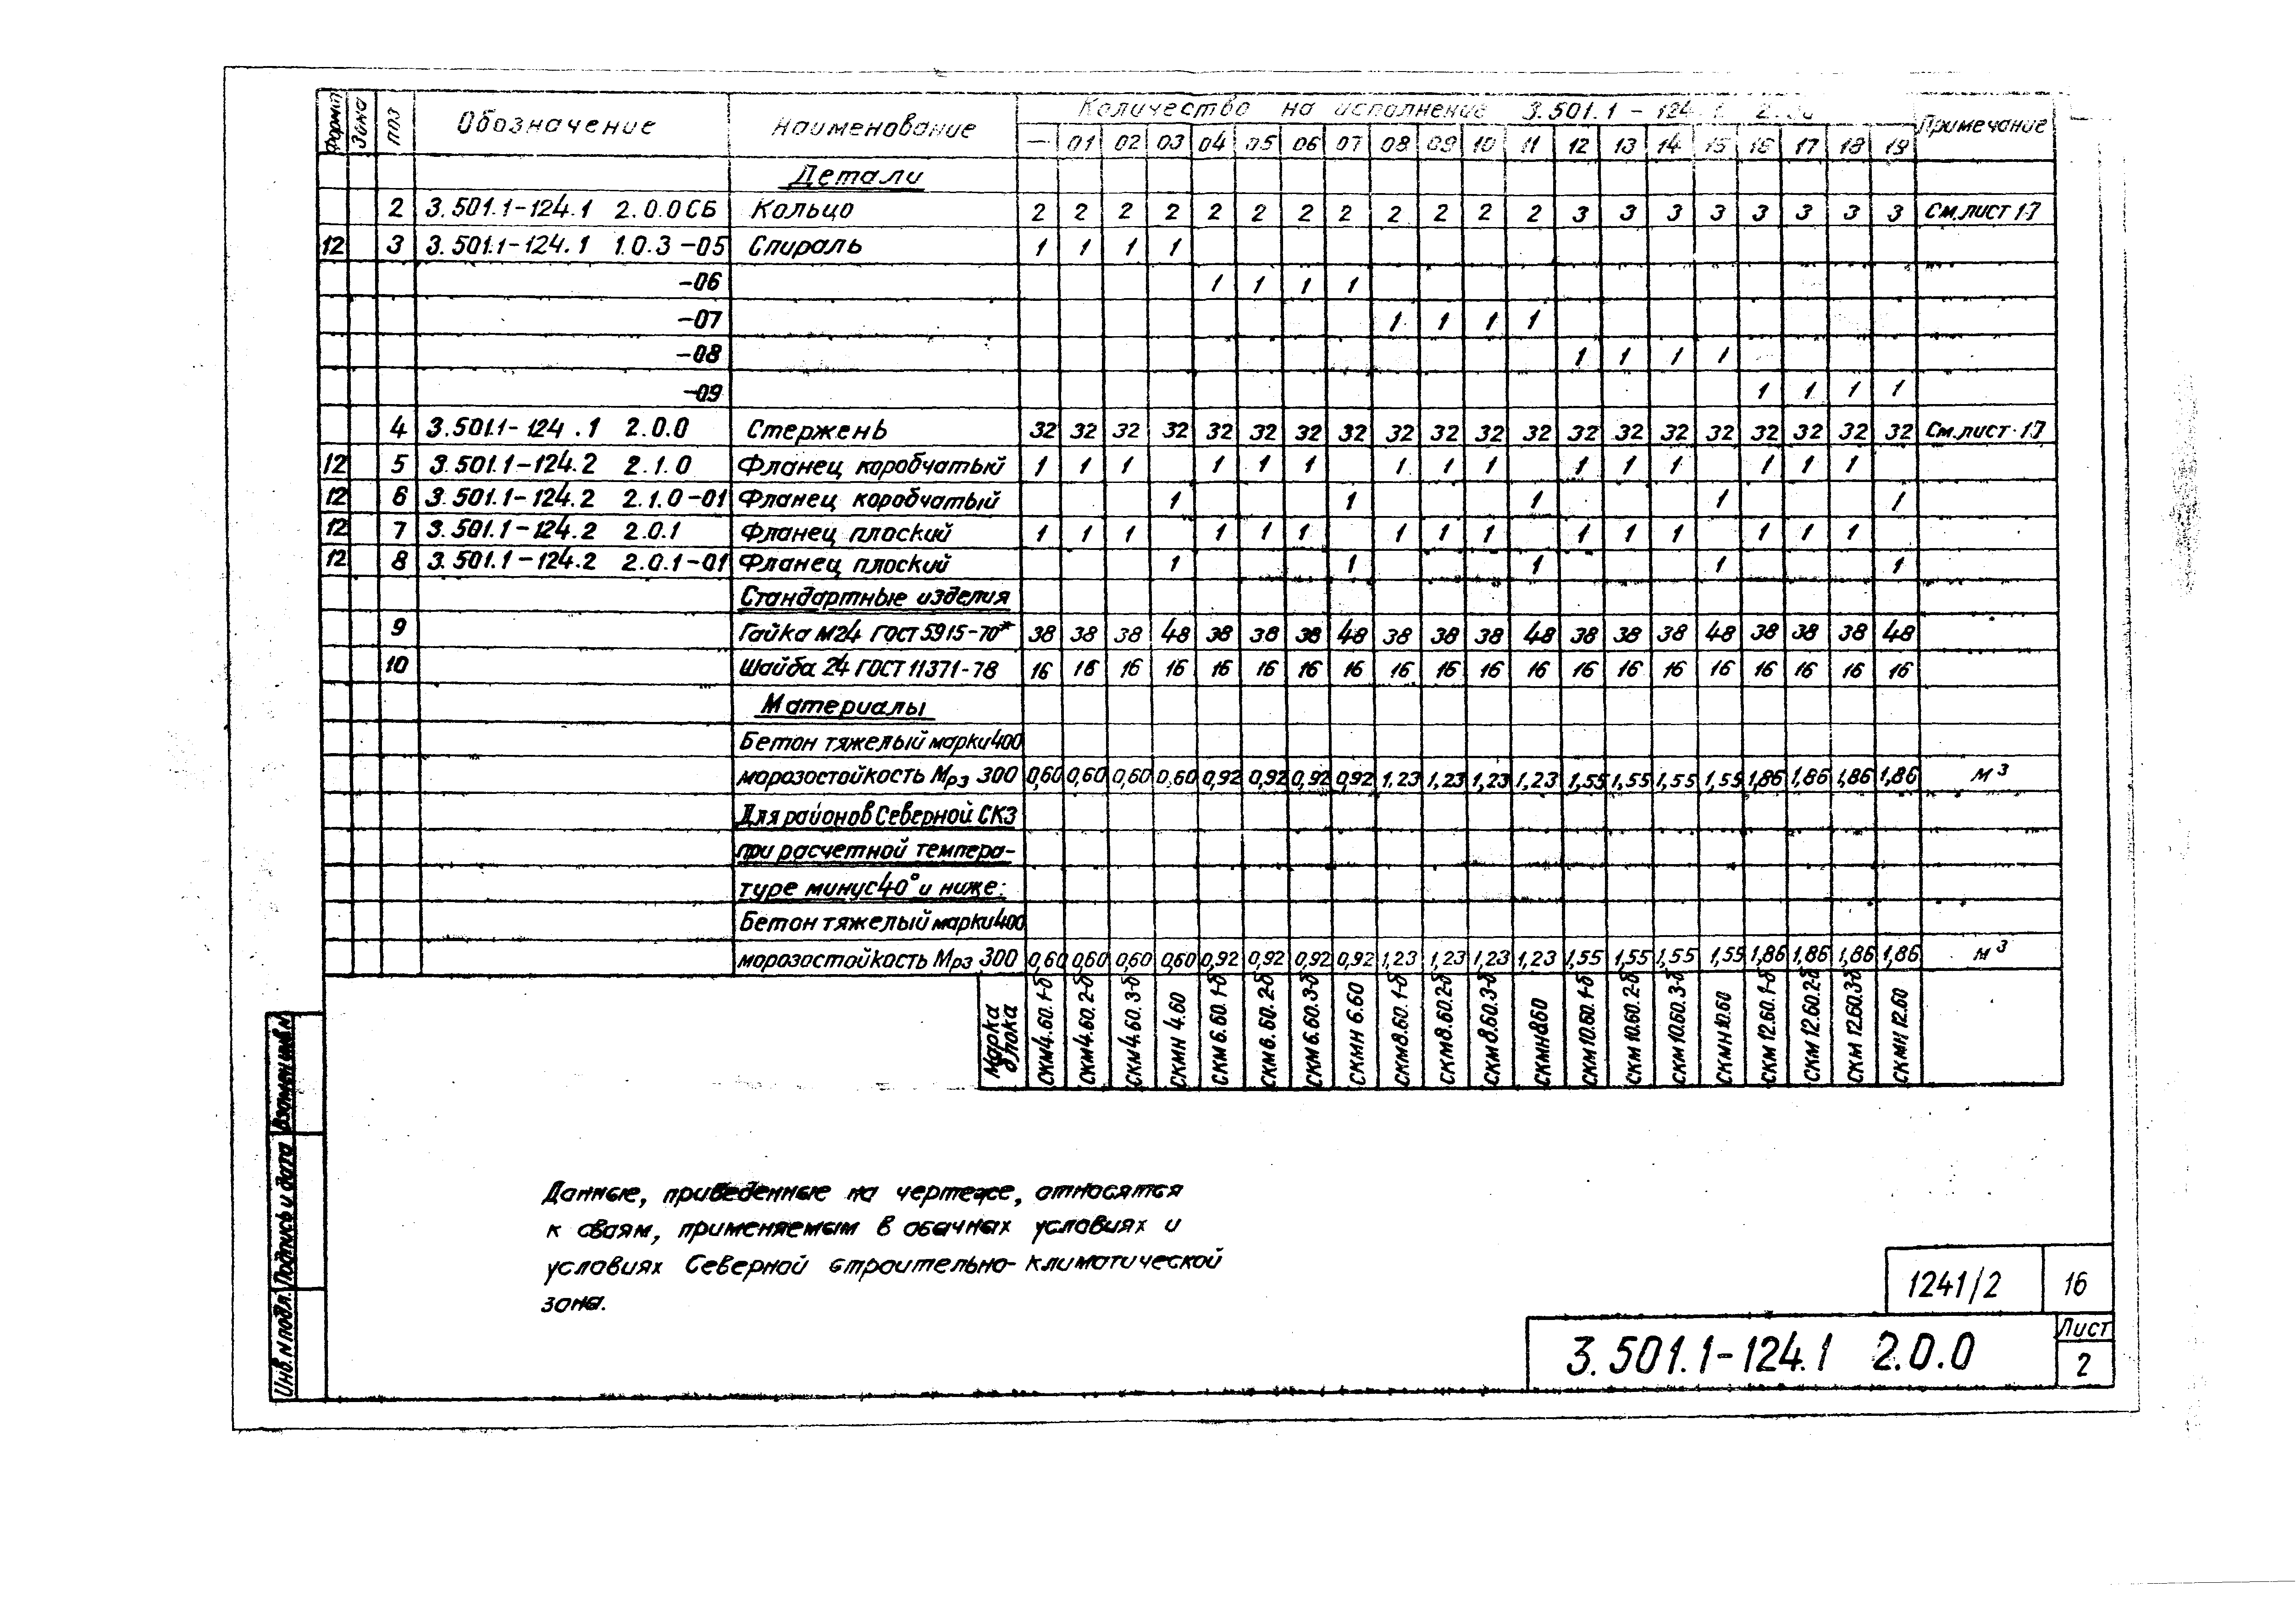 Формат Зона Поз Обозначение Наименование Количество на исполнение 3.501.1-124.1 Примечание
— 01 02 03 04 05 06 07 08 09 10 11 12 13 14 15 16 17 18 19
Детали
2 3.501.1-124.1 2.0.0СБ Кольцо 2 2 2 2 2 2 2 2 2 2 2 2 3 3 3 3 3 3 3 3 См.лист 1.7
12 3 3.501.1-124.1 1.0.3-05 Спираль 1 1 1 1
-06 1 1 1 1
-07 1 1 1 1
-08 1 1 1 1
-09 1 1 1 1
4 3.501.1-124.1 2.0.0 Стержень 32 32 32 32 32 32 32 32 32 32 32 32 32 32 32 32 32 32 32 32 См.лист.1.7
12 5 3.501.1-124.2 2.1.0 Фланец коробчатый 1 1 1 1 1 1 1 1 1 1 1 1 1 1 1
12 6 3.501.1-124.2 2.1.0-01 Фланец коробчатый 1 1 1 1 1
12 7 3.501.1-124.2 2.0.1 Фланец плоский 1 1 1 1 1 1 1 1 1 1 1 1 1 1 1
12 8 3.501.1-124.2 2.0.1-01 Фланец плоский 1 1 1 1 1
Стандартные изделия
9 Гайка М24 ГОСТ 5915-70* 38 38 38 48 38 38 38 48 38 38 38 48 38 38 38 48 38 38 38 48
10 Шайба 24 ГОСТ 11371-78 16 16 16 16 16 16 16 16 16 16 16 16 16 16 16 16 16 16 16 16
Материалы
Бетон тяжелый марки 400
морозостойкость Мрз 300 0,60 0,60 0,60 0,60 0,92 0,92 0,92 0,92 1,23 1,23 1,23 1,23 1,55 1,55 1,55 1,55 1,86 1,86 1,86 1,86 м³
Для районов Северной СКЗ
при расчетной темпера-
туре минус 40° и ниже:
Бетон тяжелый марки 400
морозостойкость Мрз 300 0,60 0,60 0,60 0,60 0,92 0,92 0,92 0,92 1,23 1,23 1,23 1,23 1,55 1,55 1,55 1,55 1,86 1,86 1,86 1,86 м³
Марка
блока
СКМ 4.60.1-б
СКМ 4.60.2-б
СКМ 4.60.3-б
СКМН 4.60
СКМ 6.60.1-б
СКМ 6.60.2-б
СКМ 6.60.3-б
СКМН 6.60
СКМ 8.60.1-б
СКМ 8.60.2-б
СКМ 8.60.3-б
СКМН 860
СКМ 10.60.1-б
СКМ 10.60.2-б
СКМ 10.60.3-б
СКМН 10.60
СКМ 12.60.1-б
СКМ 12.60.2-б
СКМ 12.60.3-б
СКМН 12.60
Данные, приведенные на чертеже, относятся
к сваям, применяемым в обычных условиях и
условиях Северной строительно-климатической
зоне.
Инв.N подл. Подпись и дата Взамен инв.N
1241/2 16
3.501.1-124.1 2.0.0
Лист
2